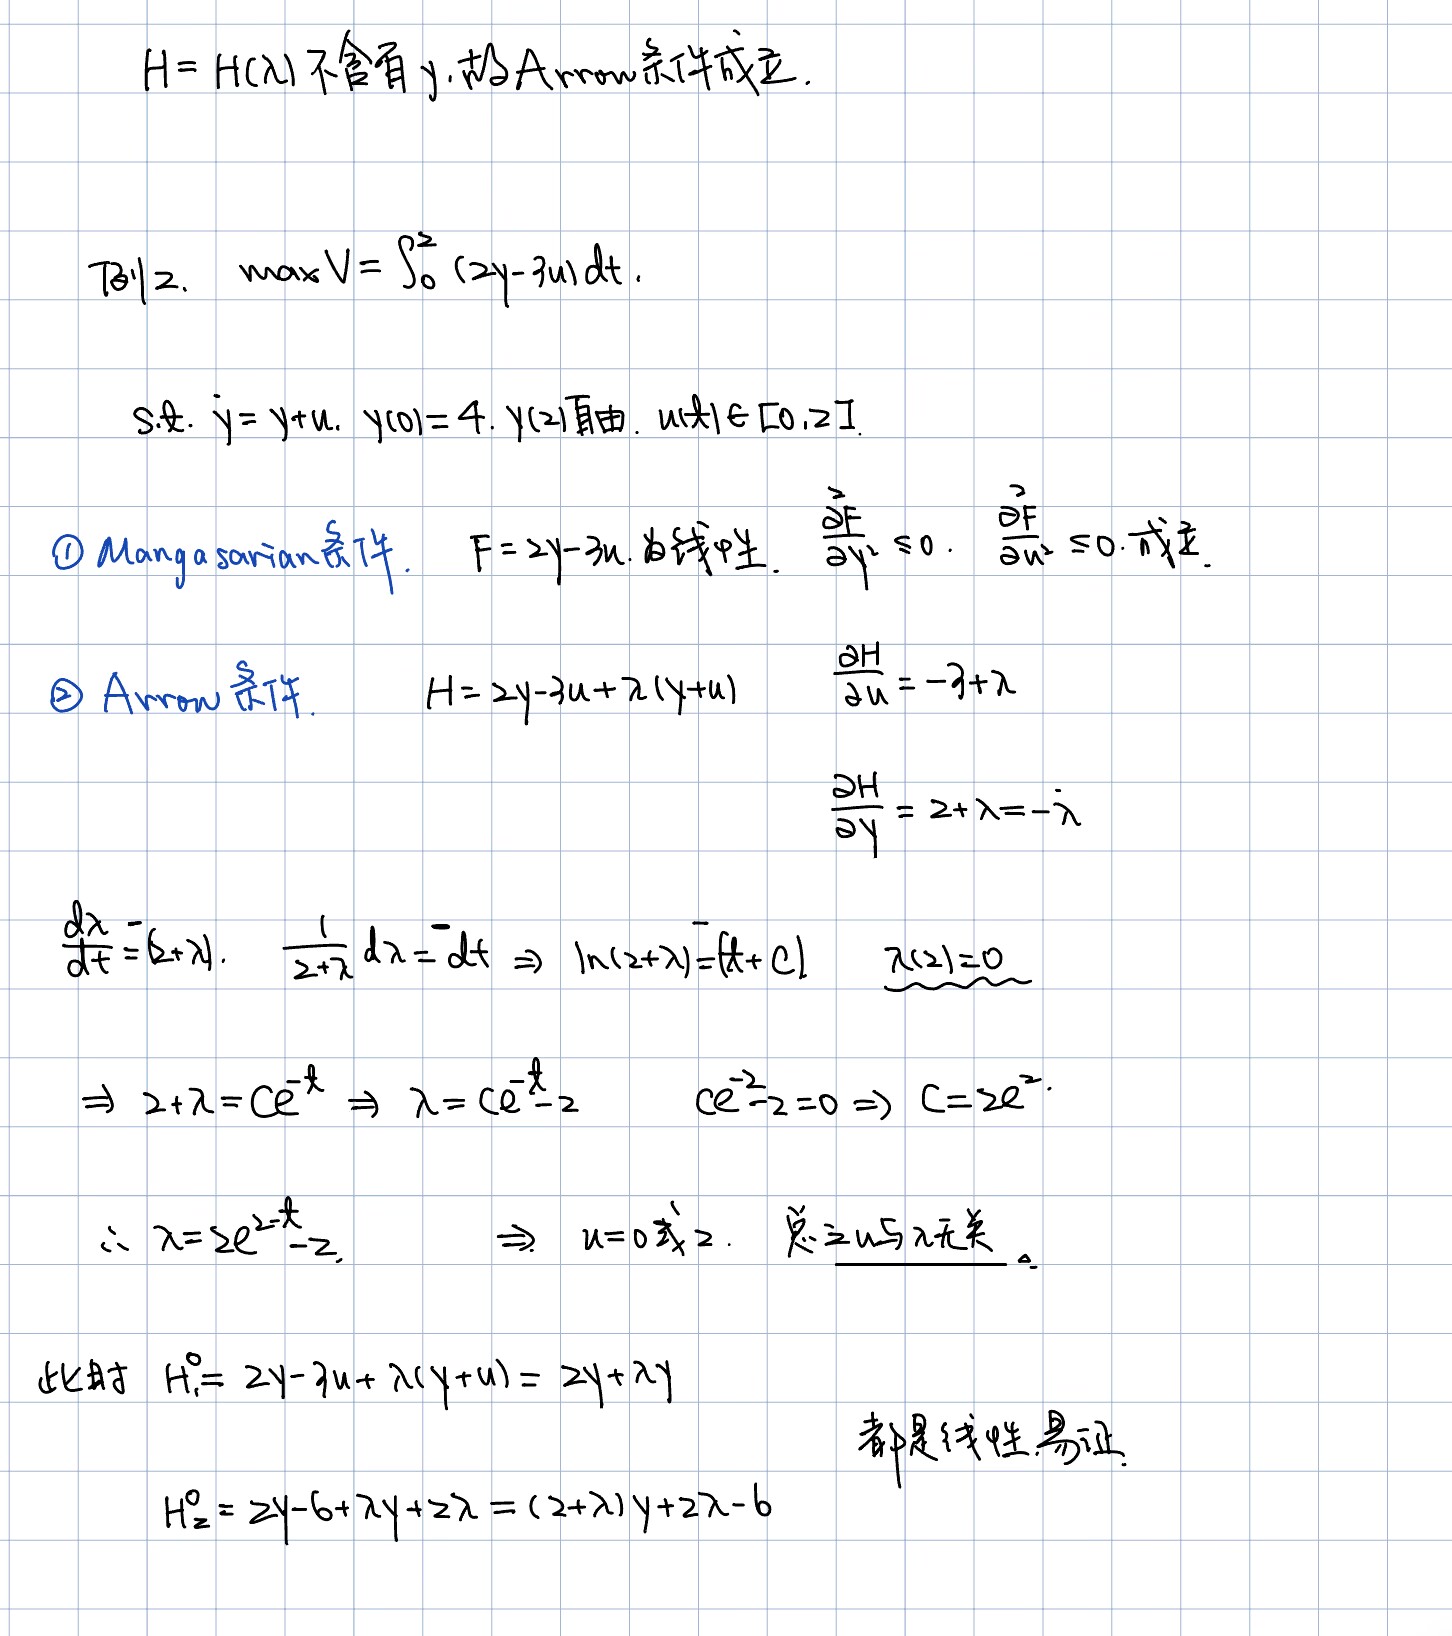 H = H(λ) 不含有 y. 故 Arrow 条件成立.
例2. max V = ∫₀² (2y-3u) dt.
s.t. ẏ = y+u. y(0)=4. y(2)自由. u(t)∈[0,2].
① Mangasarian条件. F = 2y-3u. 为线性. ∂²F/∂y² ≤ 0. ∂²F/∂u² ≤ 0. 成立.
② Arrow 条件. H = 2y-3u+λ(y+u) ∂H/∂u = -3+λ
∂H/∂y = 2+λ = -λ̇
dλ/dt = -(2+λ). 1/(2+λ) dλ = -dt ⇒ ln(2+λ) = -(t+C) λ(2)=0
⇒ 2+λ = Ce^{-t} ⇒ λ = Ce^{-t}-2 Ce^{-2}-2=0 ⇒ C=2e².
∴ λ = 2e^{2-t}-2. ⇒ u=0或2. 总之u与λ无关。
此时 H₁⁰ = 2y-3u+λ(y+u) = 2y+λy
都是线性.易证.
H₂⁰ = 2y-6+λy+2λ = (2+λ)y+2λ-6